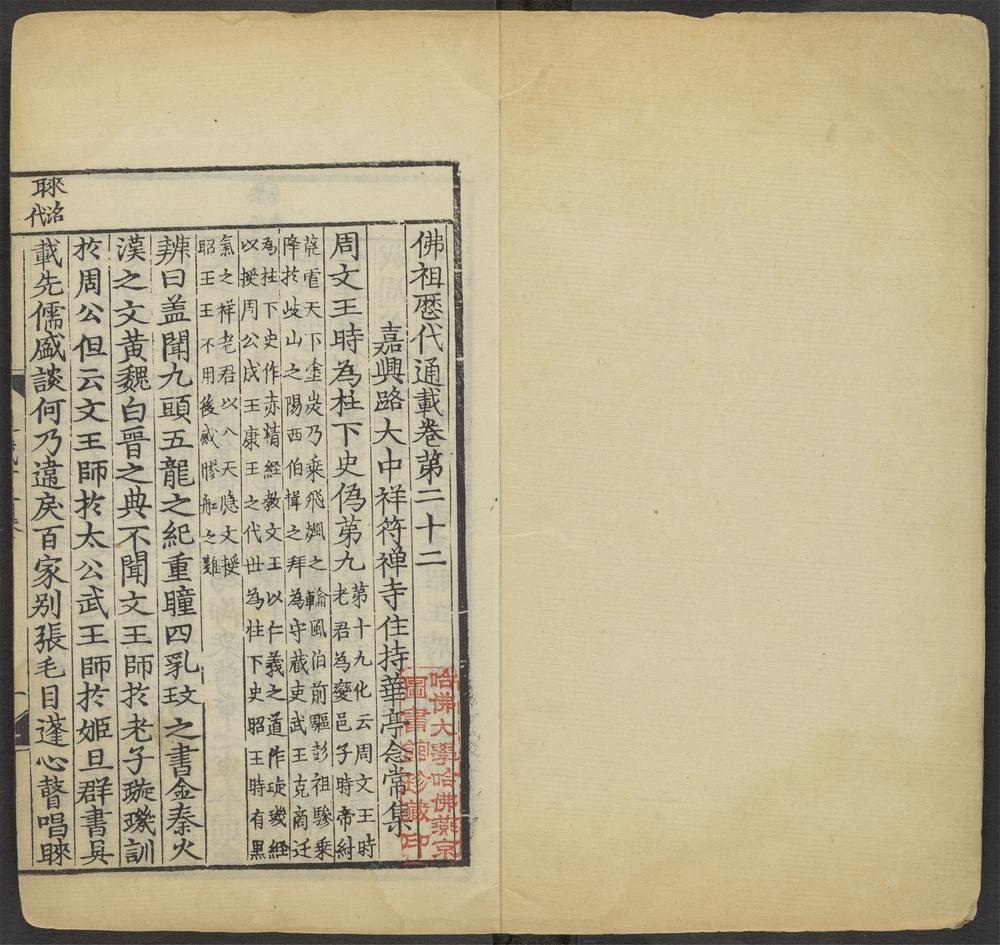 佛祖歷代通載卷第二十二
嘉興路大中祥符禅寺住持華亭念常集
周文王時為柱下史偽第九
第十九化云周文王時
老君為爕邑子時帝紂
荒虐天下塗炭乃乘飛飈之輪風伯前驅彭祖驂乗
降扵岐山之陽西伯懽之拜為守蔵吏武王克商迁
為柱下史作赤精經教文王以仁義之道作琁璣經
以授周公成王康王之代世為柱下史昭王時有黒
氣之祥老君以八天隠文授
昭王王不用後感膠船之難
辨曰盖聞九頭五龍之紀重瞳四乳玟之書金秦火
漢之文黄魏白晉之典不聞文王師扵老子璇璣訓
扵周公但云文王師扵太公武王師扵姬旦群書具
載先儒盛談何乃違戾百家别張毛目蓬心瞽唱睞
睞洺
耴代
哈佛大學哈佛燕京
圖書館珍藏印